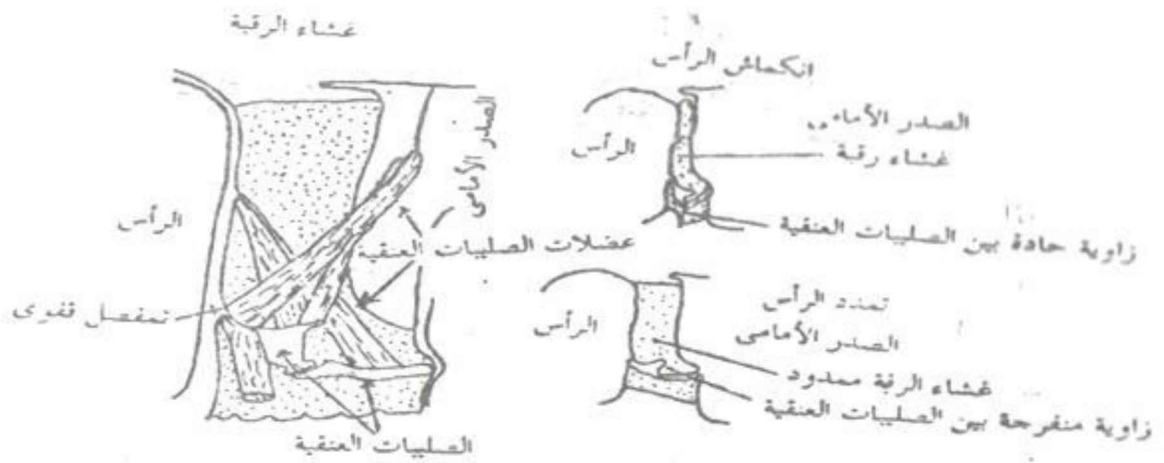 غشاء الرقبة
الصدر الأمامى
الرأس
عضلات الصليبات العنقية
تمفصل قفوى
الصليبات العنقية
انكماش الرأس
الصدر الأمامى
الرأس
غشاء رقبة
زاوية حادة بين الصليبات العنقية
تمدد الرأس
الرأس
الصدر الأمامى
غشاء الرقبة ممدود
زاوية منفرجة بين الصليبات العنقية